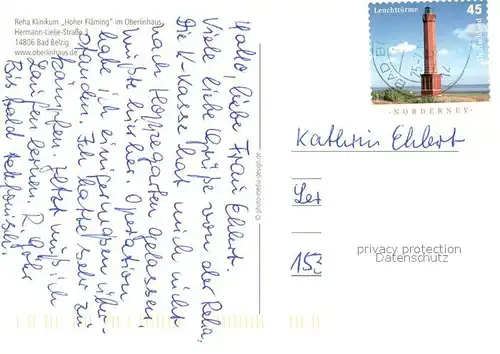 Reha Klinikum „Hoher Fläming" im Oberlinhaus
Hermann-Lielje-Straße 3
14806 Bad Belzig
www.oberlinhaus.de
Hallo, liebe Frau Ehlert.
Viele liebe Grüße von der Reha.
Die K-Kasse hat mich nicht
nach Hoppegarten gelassen,
mußte hierher. Operation
habe ich einigermaßen über-
standen. Ich hatte sehr zu
kämpfen. Jetzt muß ich
Laufen lernen. R.
Bis bald telefonisch.
© photo-media-design.de
Leuchttürme
45
Deutschland
NORDERNEY
BAD
Kathrin Ehlert
Ler
153
privacy protection
Datenschutz